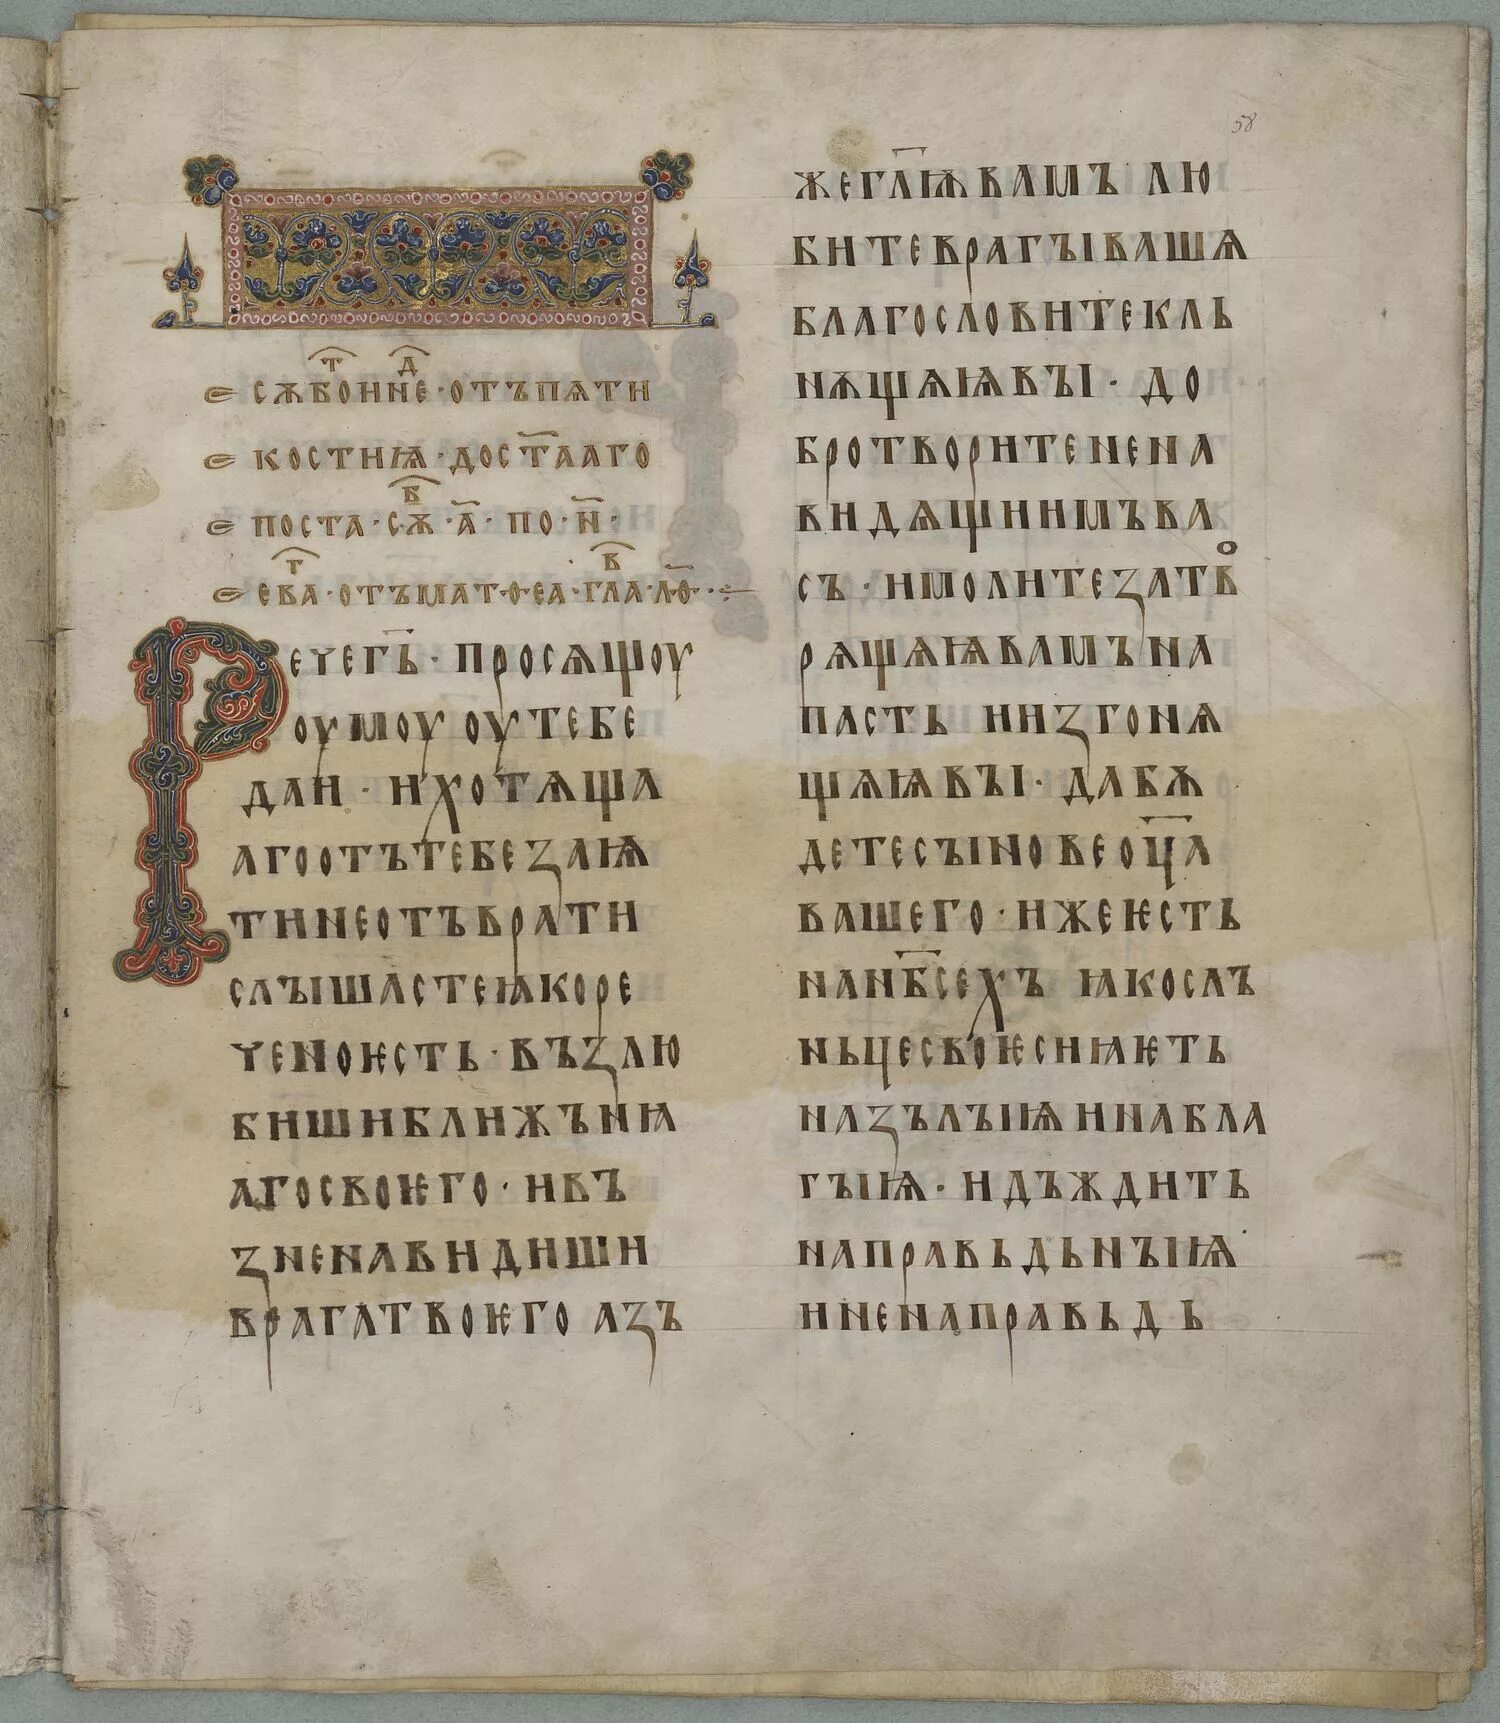 58
сѫбот҇ннед҇ · отъ пѧти
костиѩ · до ст҃ааго
поста · сѫб҇ · а҃ · по · н҃ ·
ева҇г · отъ мат·ѳ·еа · глав҇а · л҃ѳ ·
Рече г҃ь · просѧщоу
оумоу оу тебе
даи · и хотѧща
аго отъ тебе заѩ
ти не отъврати
слышасте ꙗко ре
чено ѥсть · възлю
биши ближьнꙗ
аго своѥго · и въ
зненавидиши
врага твоѥго азъ
же гл҃ѭ вамъ лю
бите врагы вашѧ
благословите кль
нѫщѧѩ вы · до
бро творите нена
видѧщиимъ ва
съ · и молите за тво
рѧщѧѩ вамъ на
пасть и изгонѧ
щѧѩ вы · да бѫ
дете сынове оц҃а
вашего · иже ѥсть
на нб҃сехъ ꙗко слъ
ньце своѥ сиꙗѥть
на зълыѩ и на бла
гыѩ · и дъждить
на правьдьныѩ
и не на правьдь